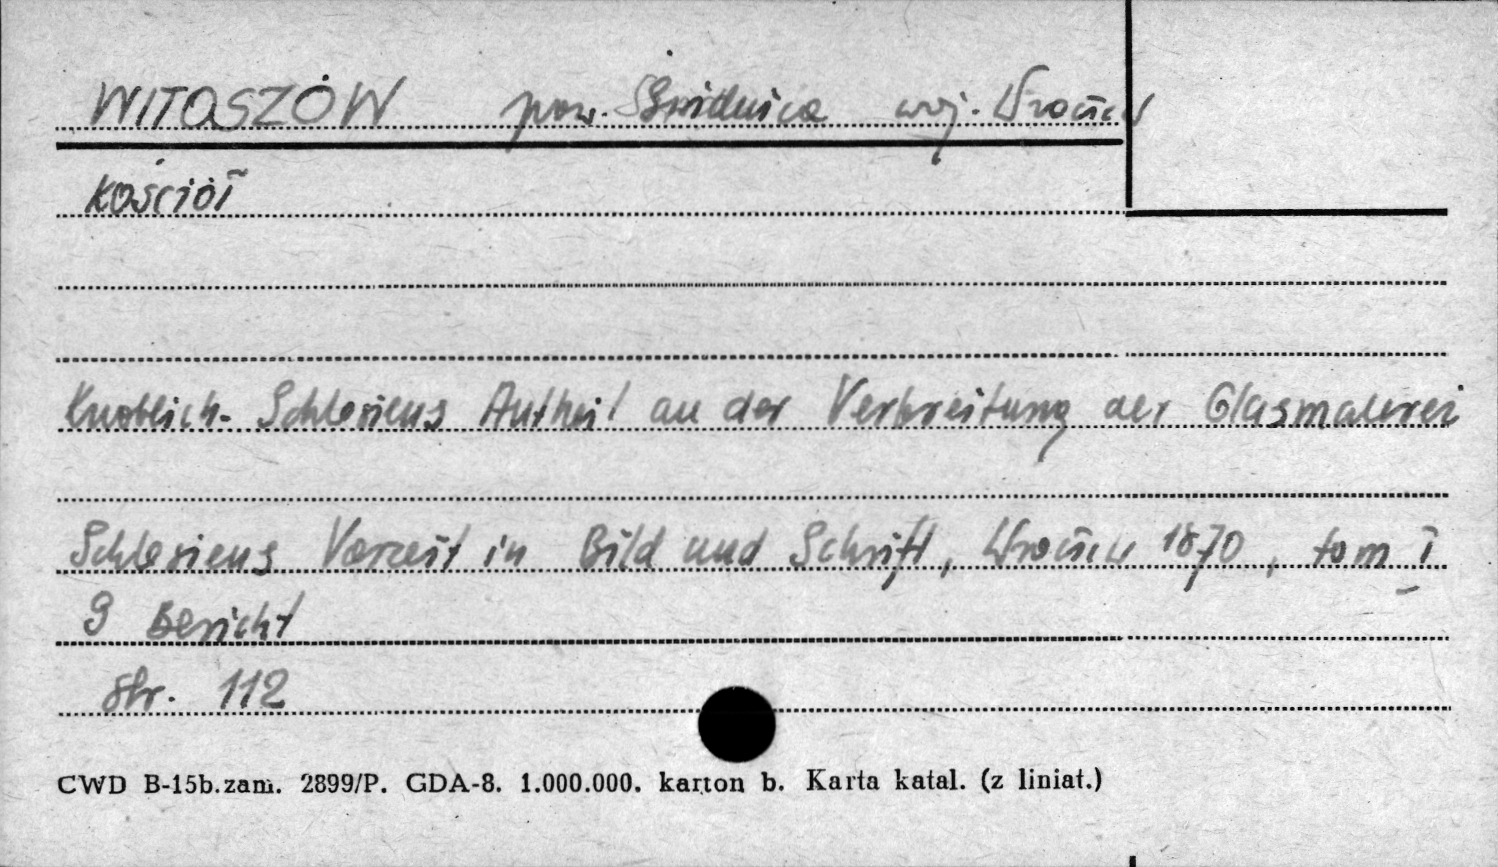 WITOSZÓW pow. Świdnica woj. Wrocław
Kościół
Knoblich - Schlesiens Antheil an der Verbreitung der Glasmalerei
Schlesiens Vorzeit in Bild und Schrift, Wrocław 1870, tom I
9 Bericht
str. 112
CWD B-15b.zam. 2899/P. GDA-8. 1.000.000. karton b. Karta katal. (z liniat.)